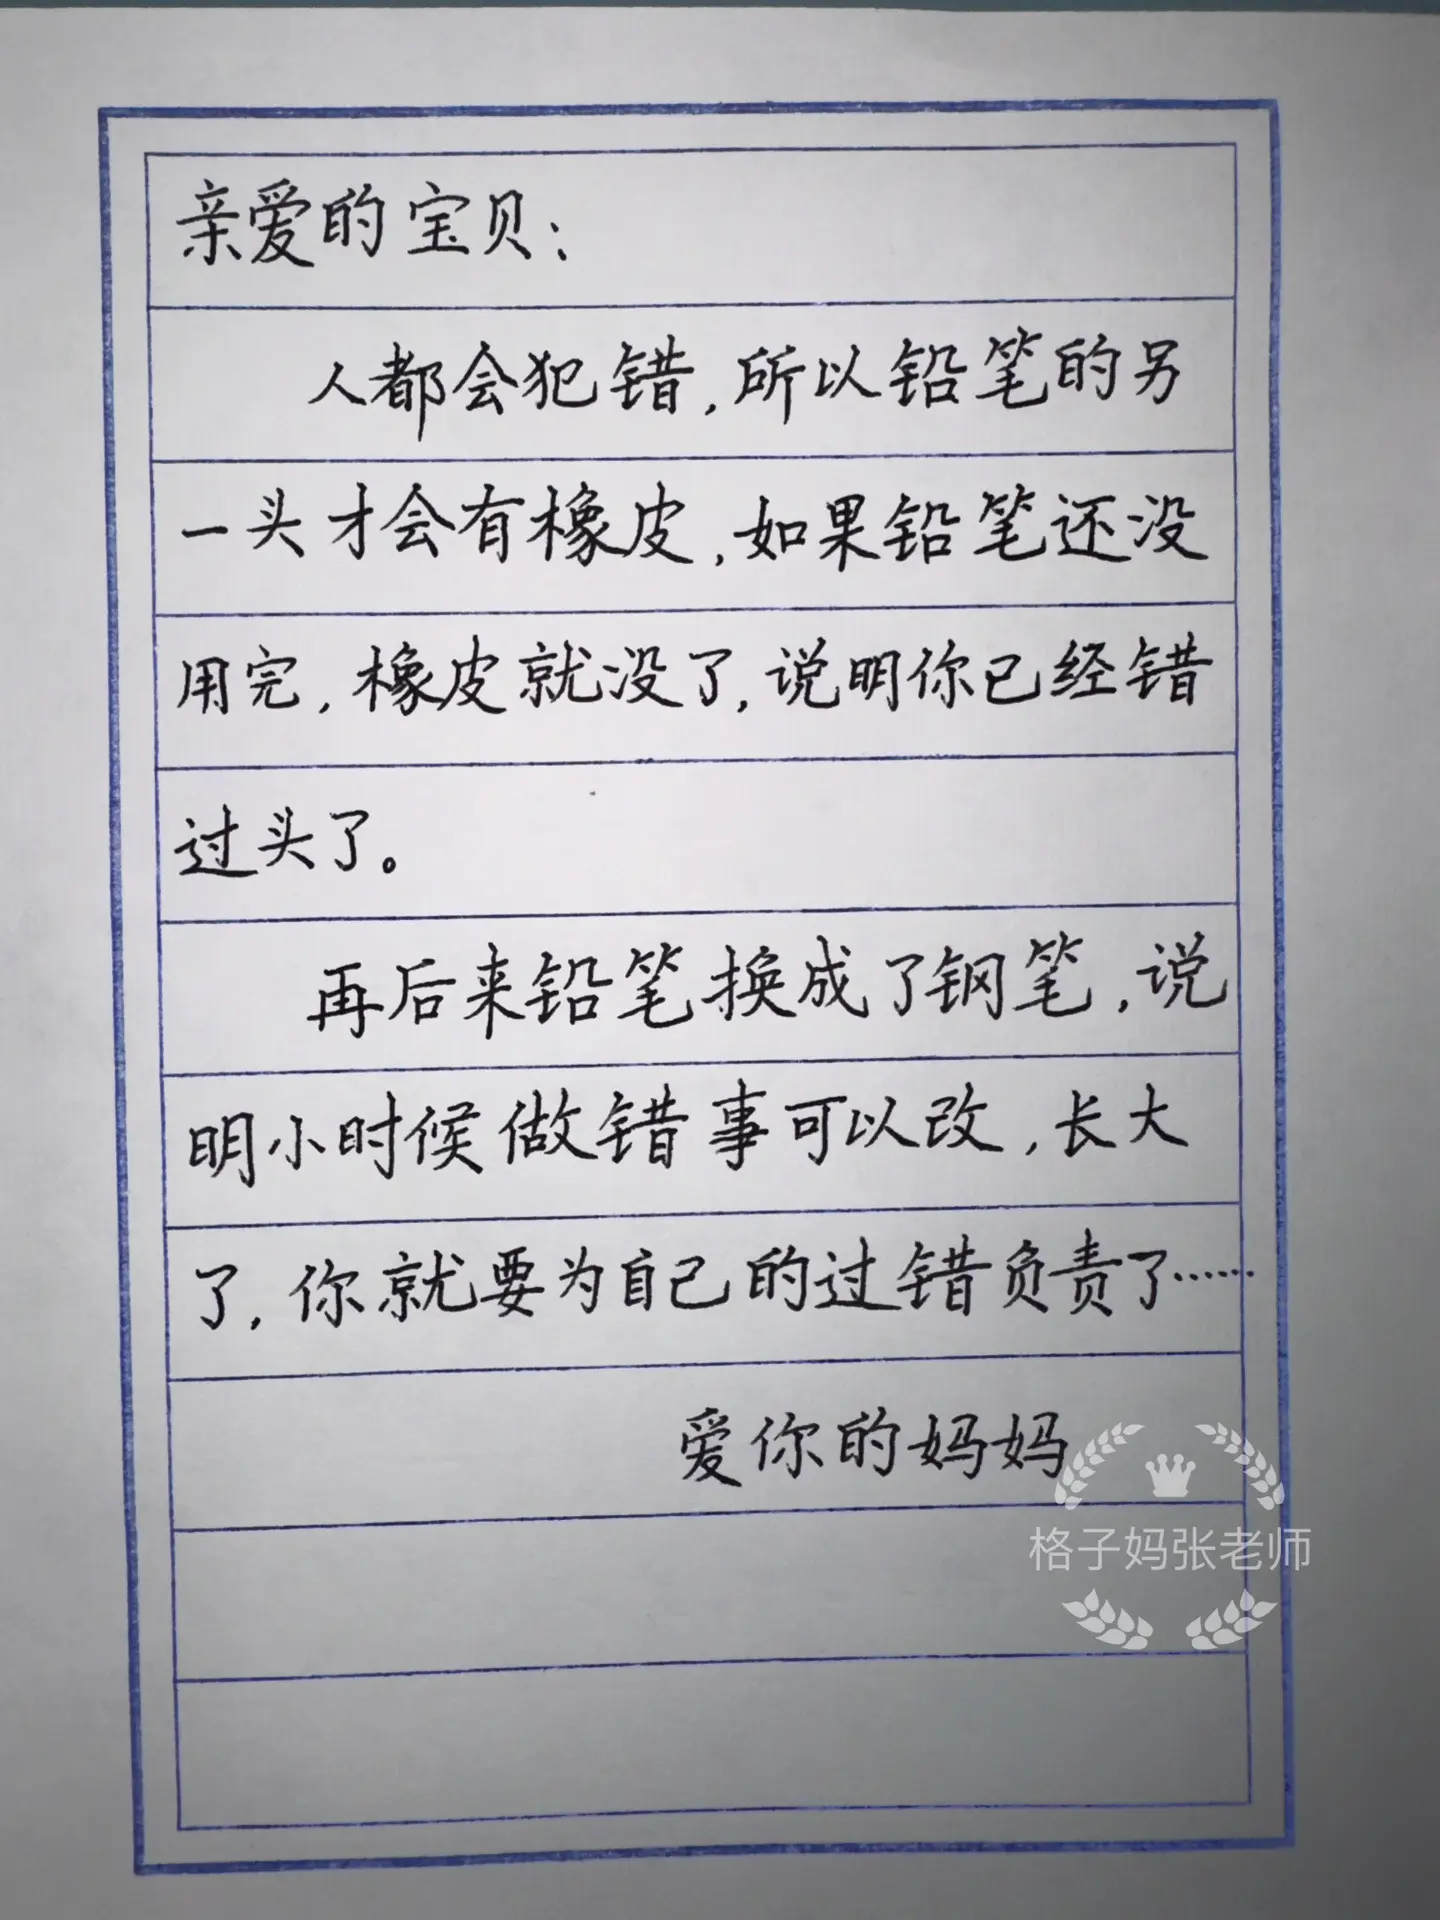 亲爱的宝贝：
人都会犯错，所以铅笔的另
一头才会有橡皮，如果铅笔还没
用完，橡皮就没了，说明你已经错
过头了。
再后来铅笔换成了钢笔，说
明小时候做错事可以改，长大
了，你就要为自己的过错负责了……
爱你的妈妈
格子妈张老师